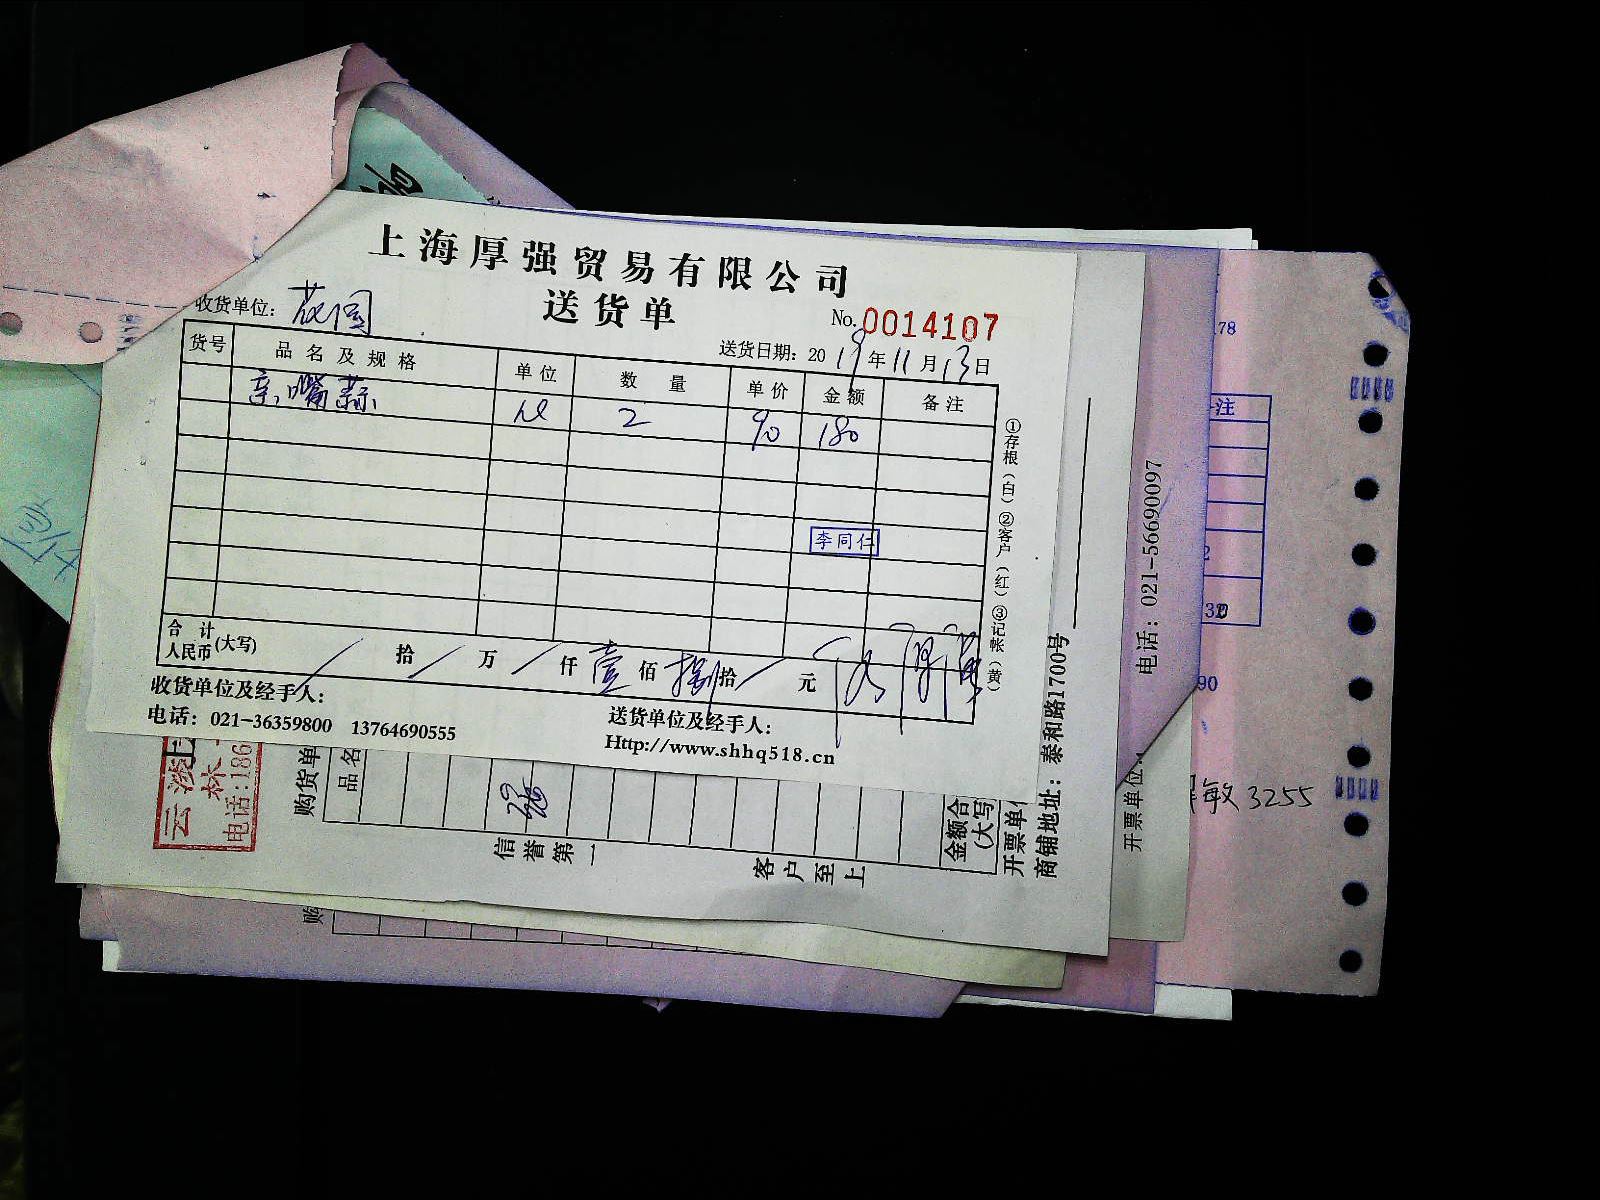 上海厚强贸易有限公司
送货单
收货单位：花园
No. 0014107
送货日期：2019年11月13日
货号 品名及规格 单位 数量 单价 金额 备注
亲嘴蒜 2 90 180
李同仁
合计人民币(大写) / 拾 / 万 / 仟 壹 佰 捌 拾 / 元
收货单位及经手人：
送货单位及经手人：
电话：021-36359800 13764690555
Http://www.shhq518.cn
①存根（白）②客户（红）③记帐（黄）
购货单
品名
信誉第一
客户至上
金额合
(大写
开票单位
商铺地址：泰和路1700号
电话：021-56690097
开票单位：
电话:186
78
注
90
敏 3255